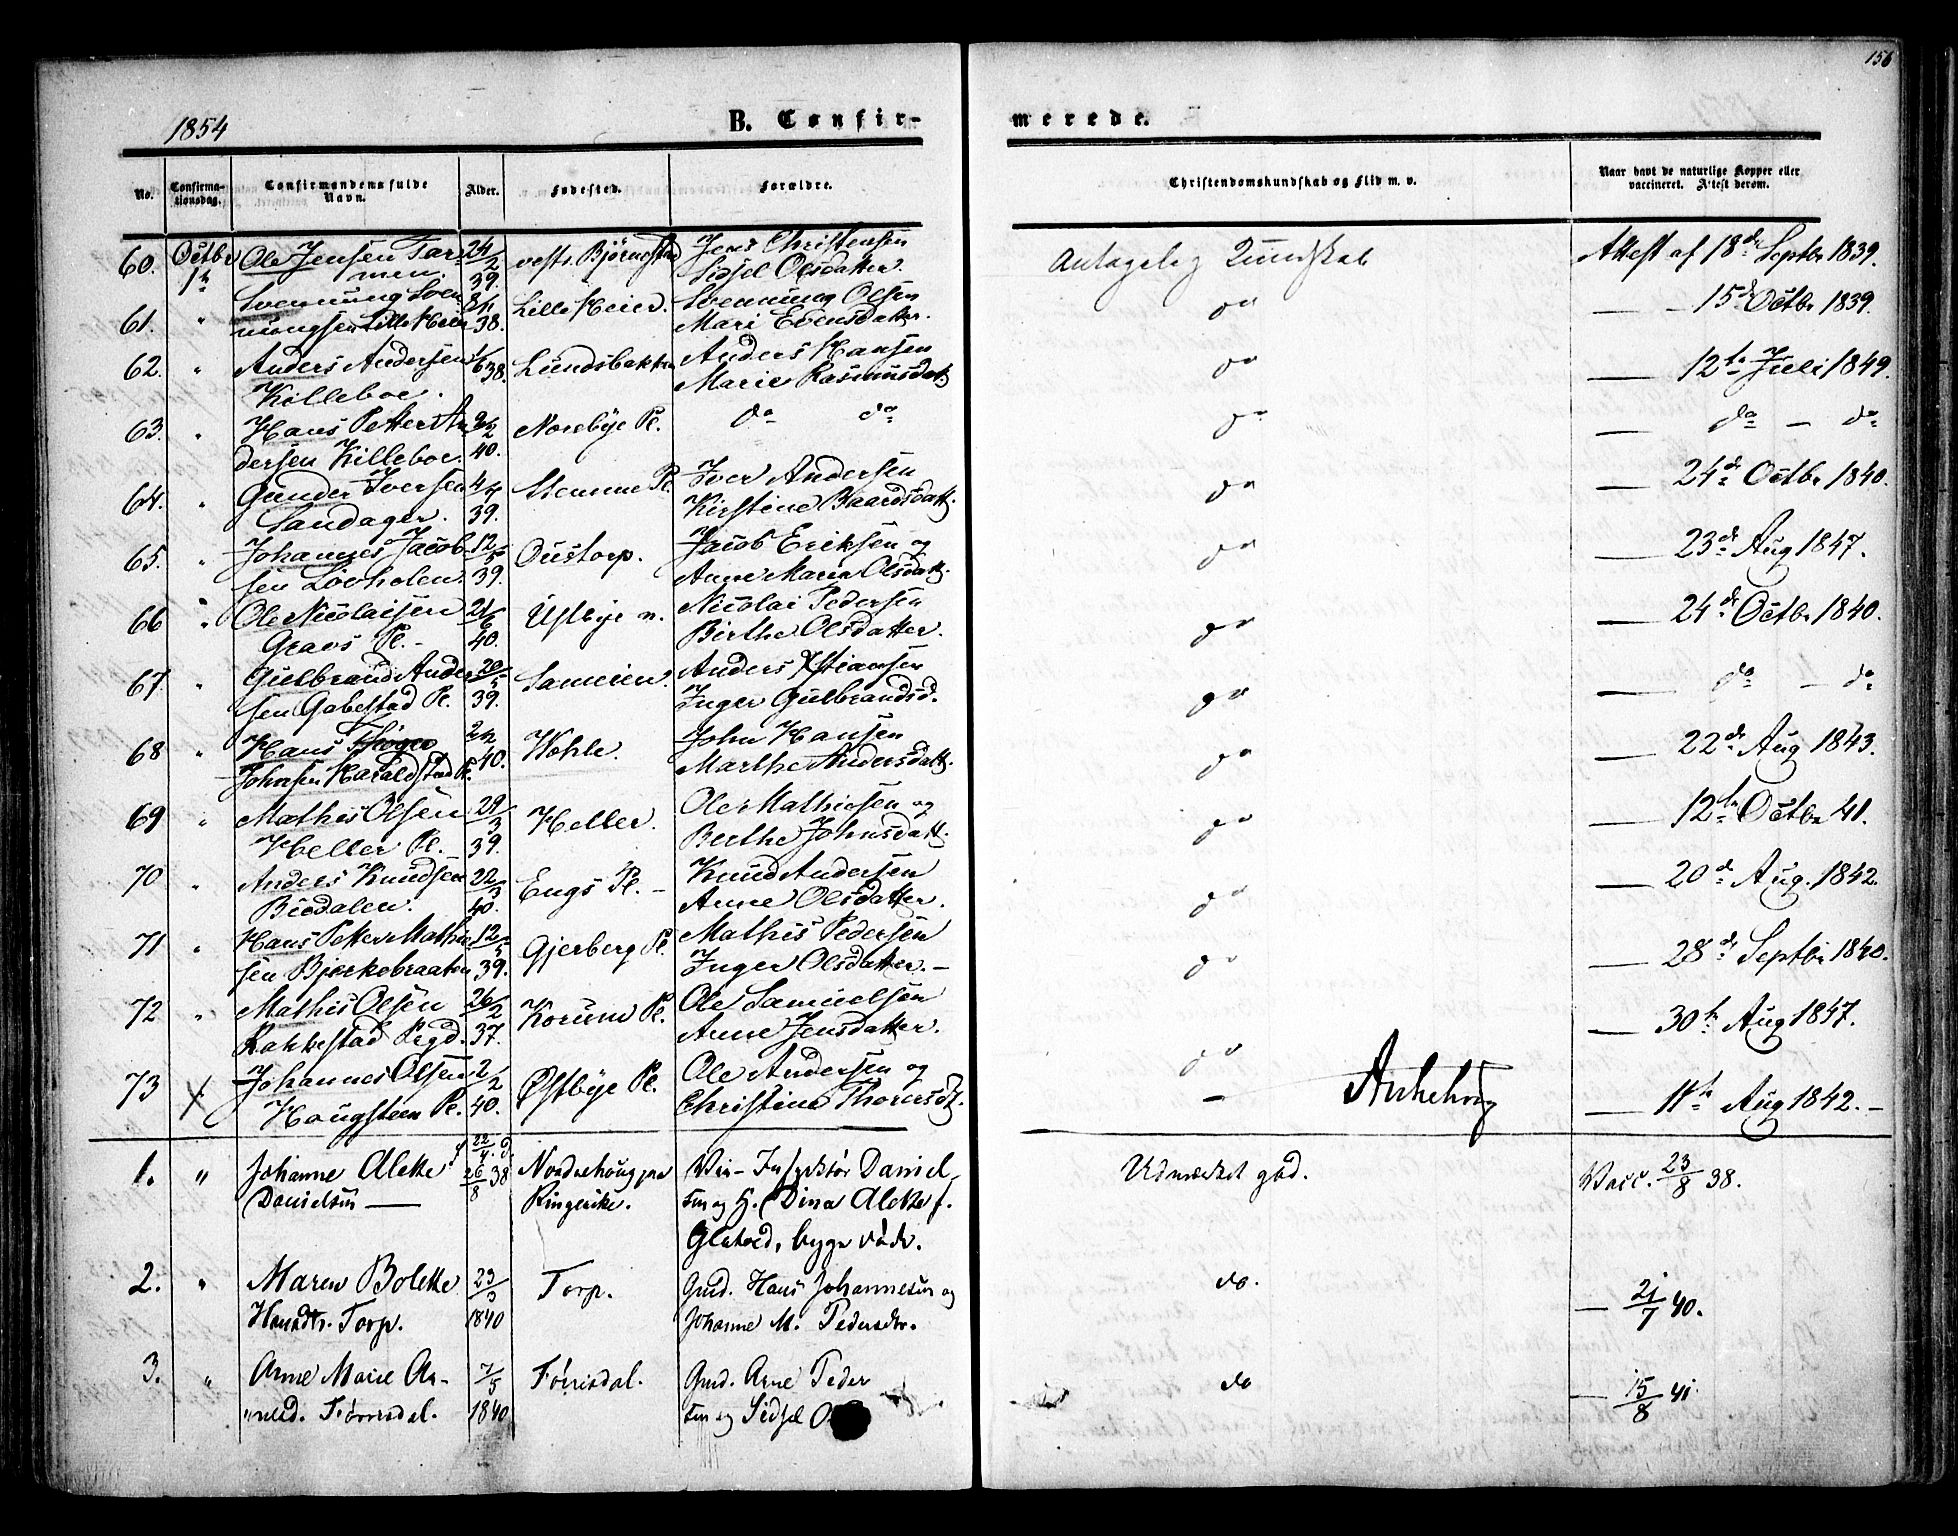 156
1854
B. Confirmerede.
No. Confirmationsdag. Confirmandens fulde Navn. Alder. Fødested. Forældre. Christendomskundskab og Flid m. v. Naar havt de naturlige Kopper eller vaccineret. Attest derom.
60. Octbr 1ste Ole Jensen Tar- 24/2 vestr. Bjørnstad Jens Christensen Antagelig Kundskab Attest af 18de Septbr 1839.
men. 39. Sidsel Olsdatter.
61. " Svennung Sven- Lille Heier. Svennung Olsen do — 15de Octbr 1839.
nungsen Lille Heier 38. Mari Evensdatter.
62. " Anders Andersen 38. Lundsbakken Anders Hansen do — 12te Juli 1849.
Killeboe. Marie Rasmusdatt.
63. " Hans Petter An- Norebye Pl. do do do — do — do
dersen Killeboe. 40.
64. " Gunder Iversen Stemme Pl. Iver Andersen do — 24de Octbr 1840.
Sandager. 39. Kirstine Baardsdatt.
65. " Johannes Jacob- 12/5 Oustorp. Jacob Eriksen og do — 23de Aug 1847.
sen Lövholen. 39. Anne Maria Olsdatt.
66 " Ole Nicolaisen 21/6 Ustbye n. Nicolai Pedersen do — 24de Octbr 1840.
Graos Pl. 40. Birthe Olsdatter.
67. " Gulbrand Ander- 20/5 Sameien. Anders Xstiansen do — do — do
sen Gabestad Pl. 39. Inger Gulbrandsd.
68 " Hans Thoger Wohle. John Hansen do — 22de Aug 1843.
Johnsen Haraldstad Pl. 40. Marthe Andersdatt.
69 " Mathis Olsen 29/3 Heller. Ole Mathiesen og do — 12te Octbr 41.
Heller Pl. 39. Berthe Johnsdatt.
70 " Anders Knudsen 22/3 Engs Pl. — Knud Andersen do — 20de Aug. 1842.
Biodalen. 40. Anne Olsdatter.
71 " Hans Petter Mathi- 12/5 Gjerberg Pl. Mathis Pedersen do — 28de Septbr 1840.
sen Bjerkebraaten 39. Inger Olsdatter. —
72 " Mathis Olsen 26/2 Korum Pl. Ole Samuelsen do — 30te Aug 1847.
Rakkestad Prgd. 37. Anne Jensdatter.
73 X Johannes Olsen 2/2 Østbye Pl. Ole Andersen og — 11te Aug 1842. —
Haugsteen Pl. 40. Christine Thoresdt.
1. " Johanne Alette 22/4 26/8 38 Nordrehoug paa Vei-Inspektør Daniel- Udmærket god. Vacc. 23/8 38.
Danielsen — Ringerike. sen og H. Dina Alette f.
Glatved, bygn Vådr.
2. " Maren Bolette 23/3 Torp. Gmd. Hans Johannesen og do. — 21/7 40.
Hansdtr. Torp. 1840 Johanne M. Pedersdtr.
3. " Anne Marie Ar- 7/5 Förrisdal. Gmd. Arne Peder do — 15/8 41.
nesd. Förrisdal. 1840 sen og Sidsel